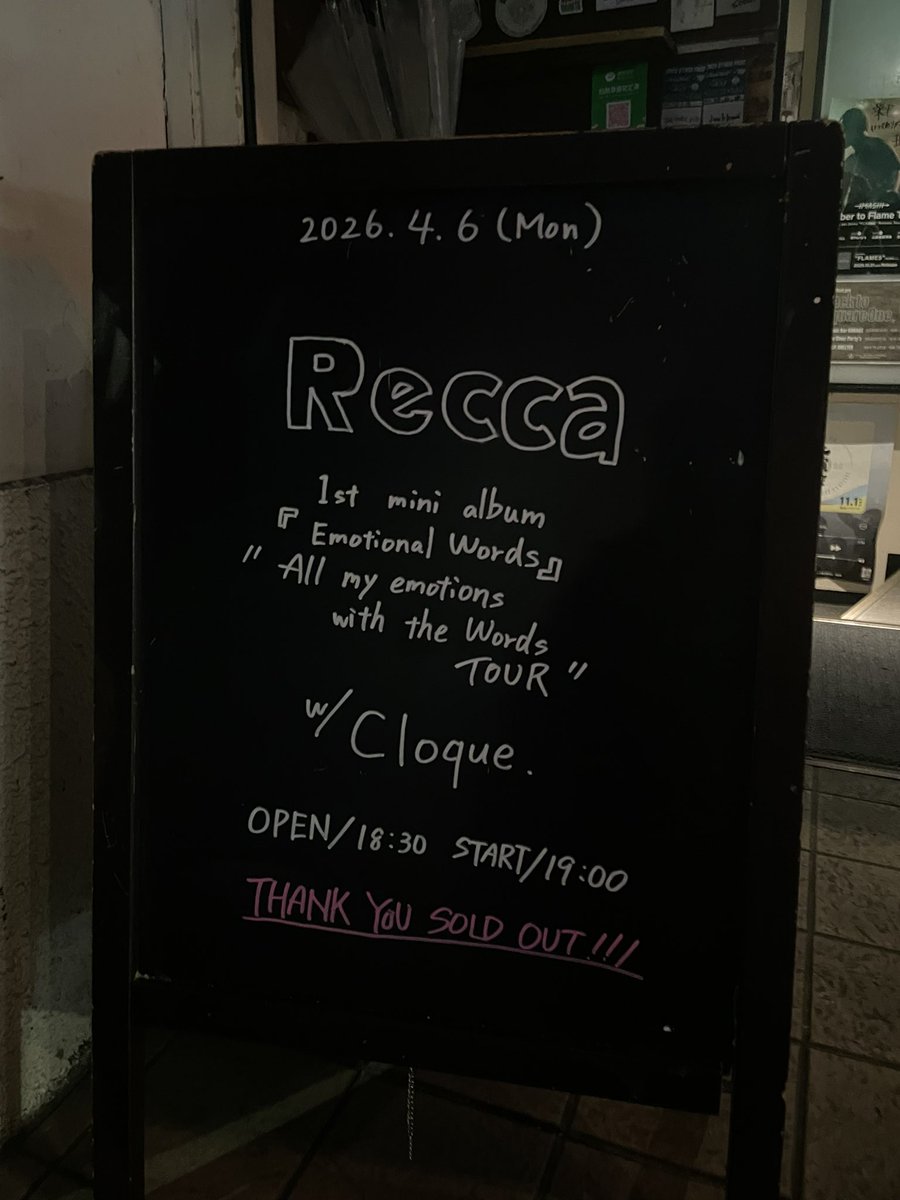 2026.4.6 (Mon)
Recca
1st mini album
『Emotional Words』
"All my emotions
with the Words
TOUR"
w/Cloque.
OPEN/18:30 START/19:00
THANK YOU SOLD OUT!!!
ber to Flame T
"FLAMES"
11.1